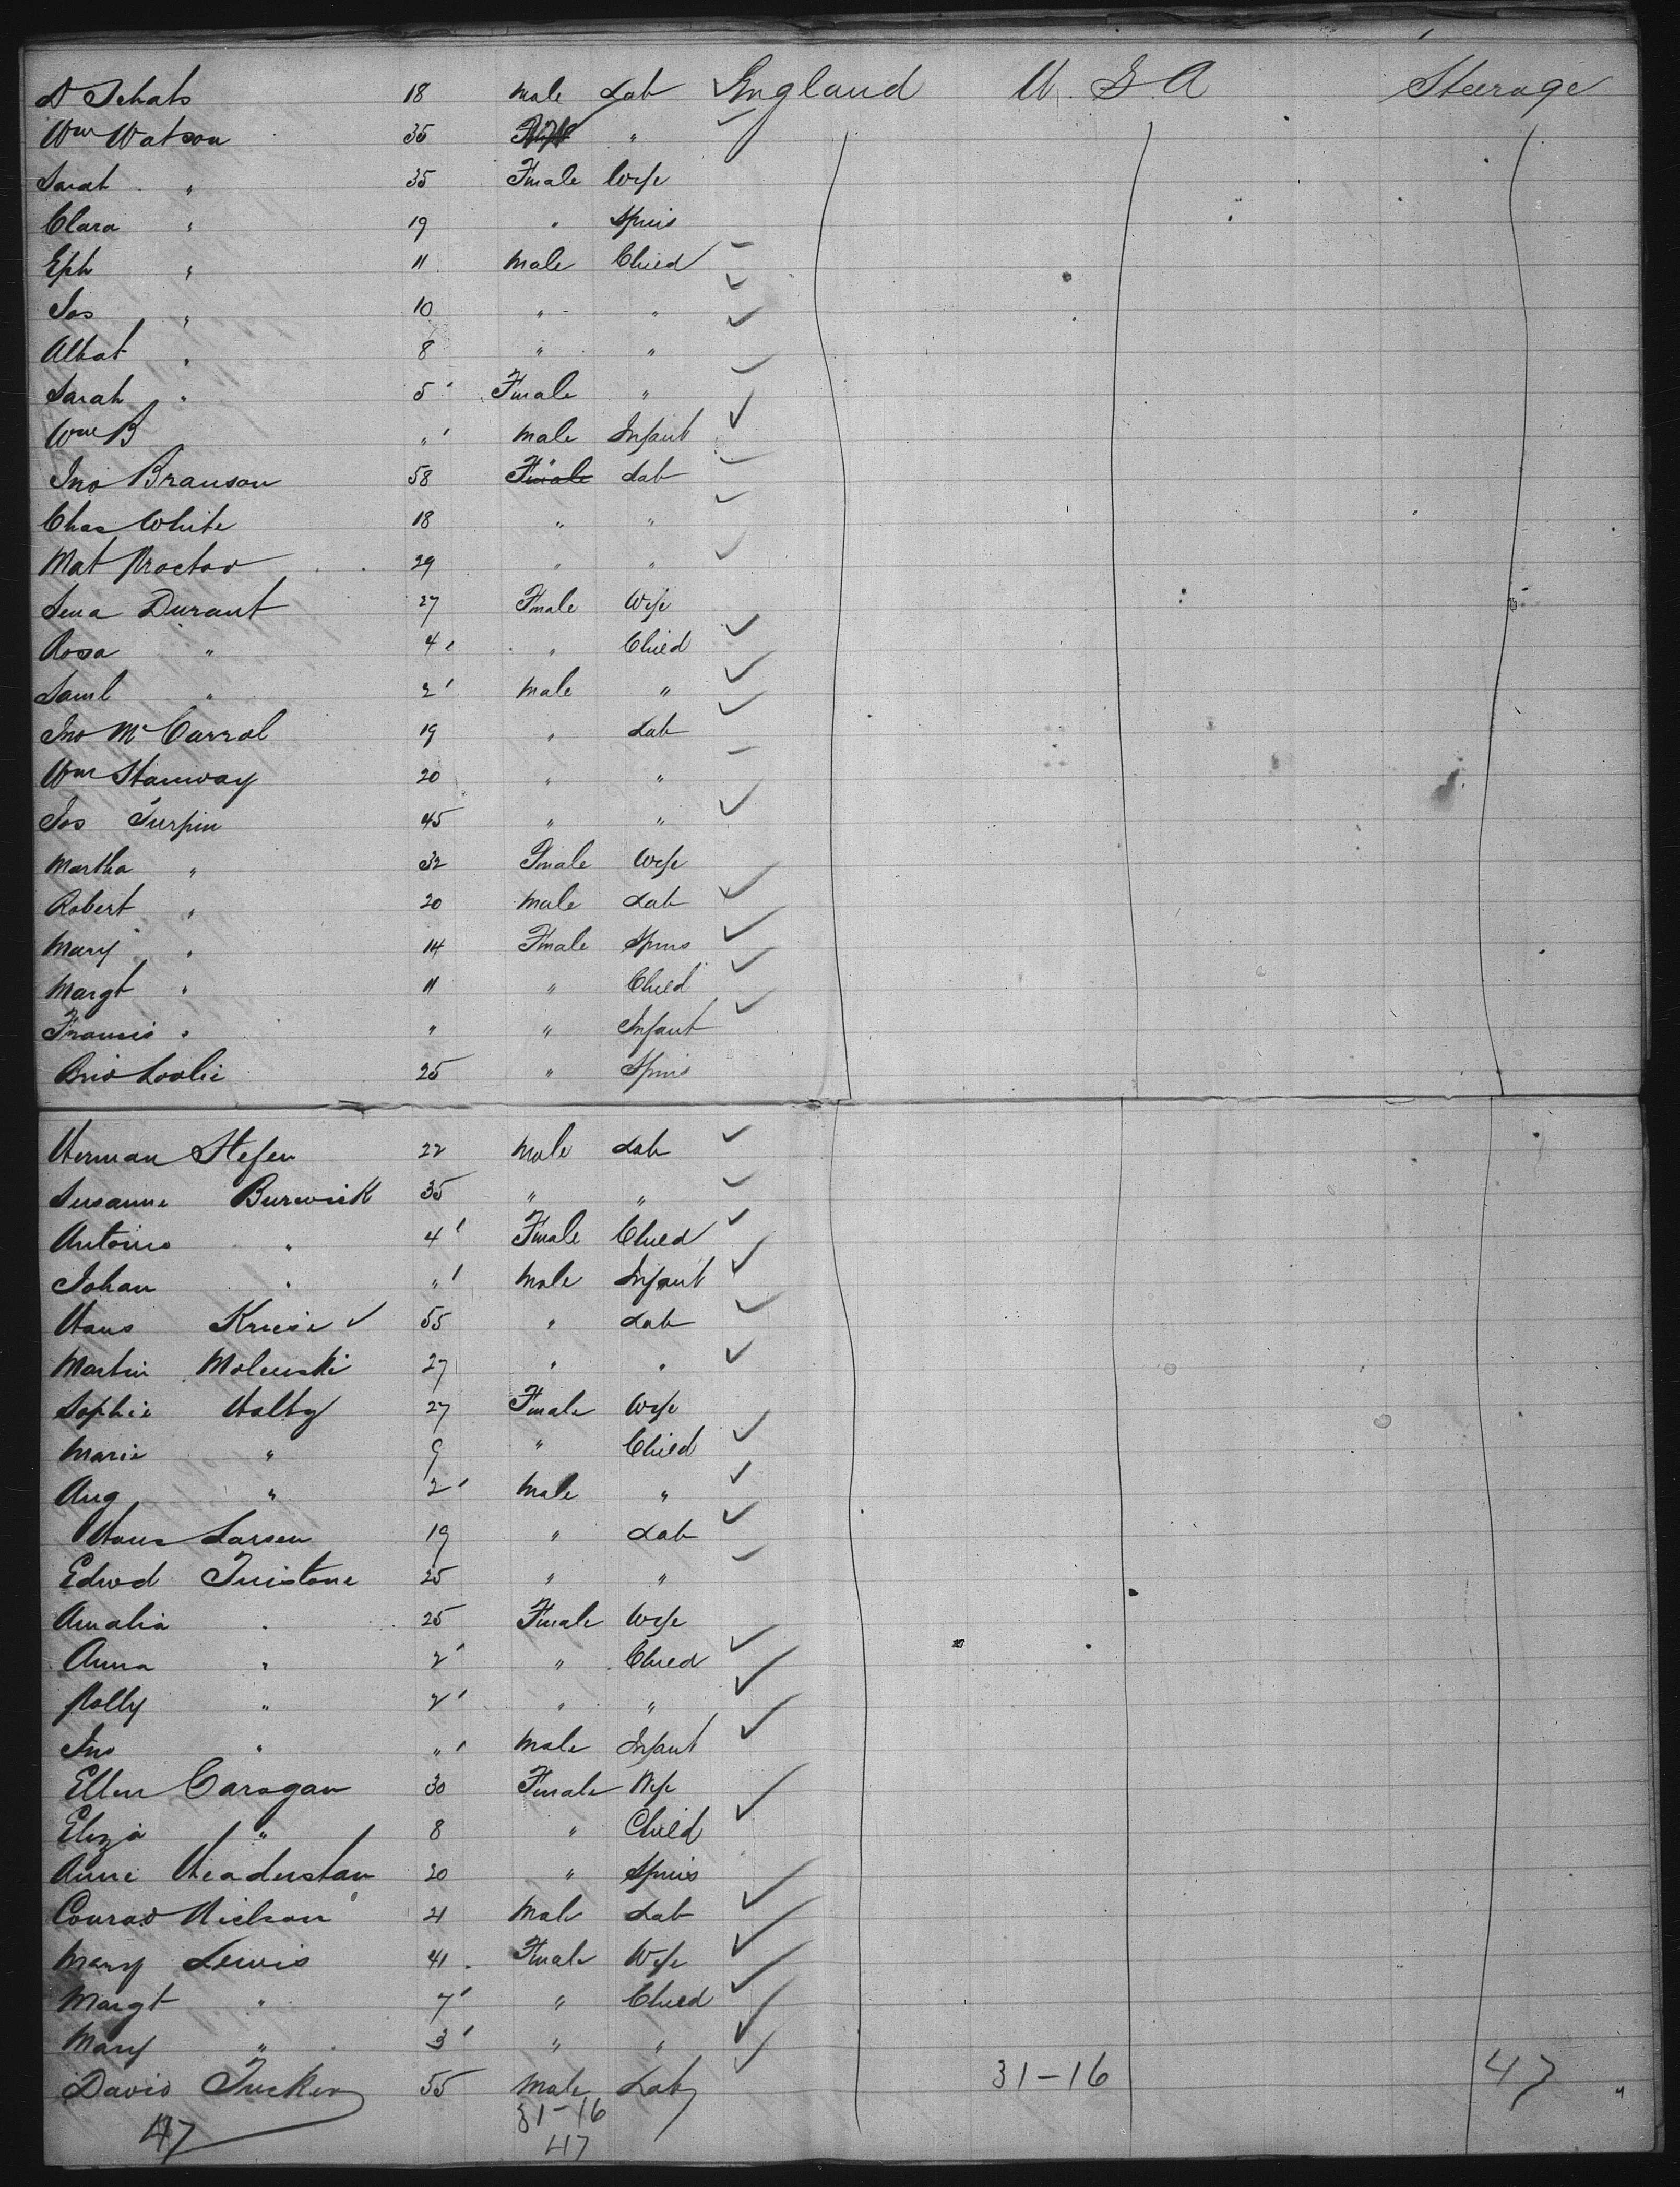 D Schats 18 Male Lab England U. S. A Steerage
Wm Watson 35 "
Sarah " 35 Female Wife
Clara " 19 " Spins
Eph " 11 Male Child
Jos " 10 " "
Albat " 8 " "
Sarah " 5 Female "
Wm B " Male Infant
Jno Branson 58 Female Lab
Chas White 18 " "
Mat Proctor 29 " "
Lena Durant 27 Female Wife
Rosa " 4 " Child
Saml " 2 Male "
Jno McCarrol 19 " Lab
Wm Stanway 20 " "
Jos Turpin 45 " "
Martha " 32 Female Wife
Robert " 20 Male Lab
Mary " 14 Female Spins
Margt " 11 " Child
Francis " " " Infant
25 " Spins
Herman Stefen 22 Male Lab
Susanne Burwick 35 " "
Antonio " 4 Female Child
Johan " " Male Infant
Hans Kruse 55 " Lab
Martin Molenski 27 " "
Sophie Holby 27 Female Wife
Marie " 9 " Child
Aug " 2 Male "
Hans Larsen 19 " Lab
Edwd 25 " "
Amalia " 25 Female Wife
Anna " 2 " Child
Polly " 2 " "
Jno " " Male Infant
Ellen Caragan 30 Female Wife
Eliza " 8 " Child
Anne 20 " Spins
Conrad Nielson 21 Male Lab
Mary Lewis 41 Female Wife
Margt " 7 " Child
Mary " 3 " "
David Tucker 55 Male Lab 31-16 47
47 31-16
47